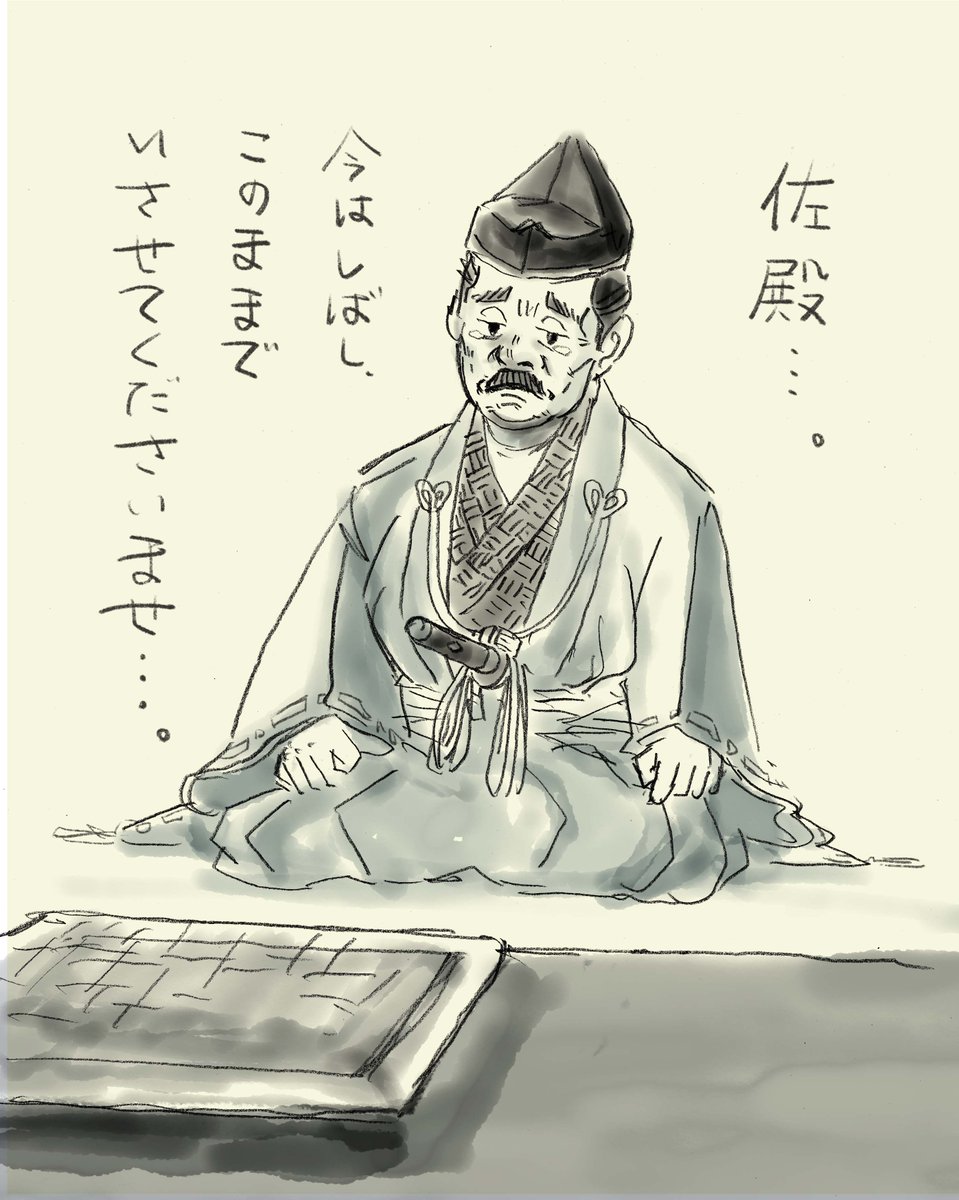 佐殿…。
今はしばし、
このままで
いさせてくださいませ…。